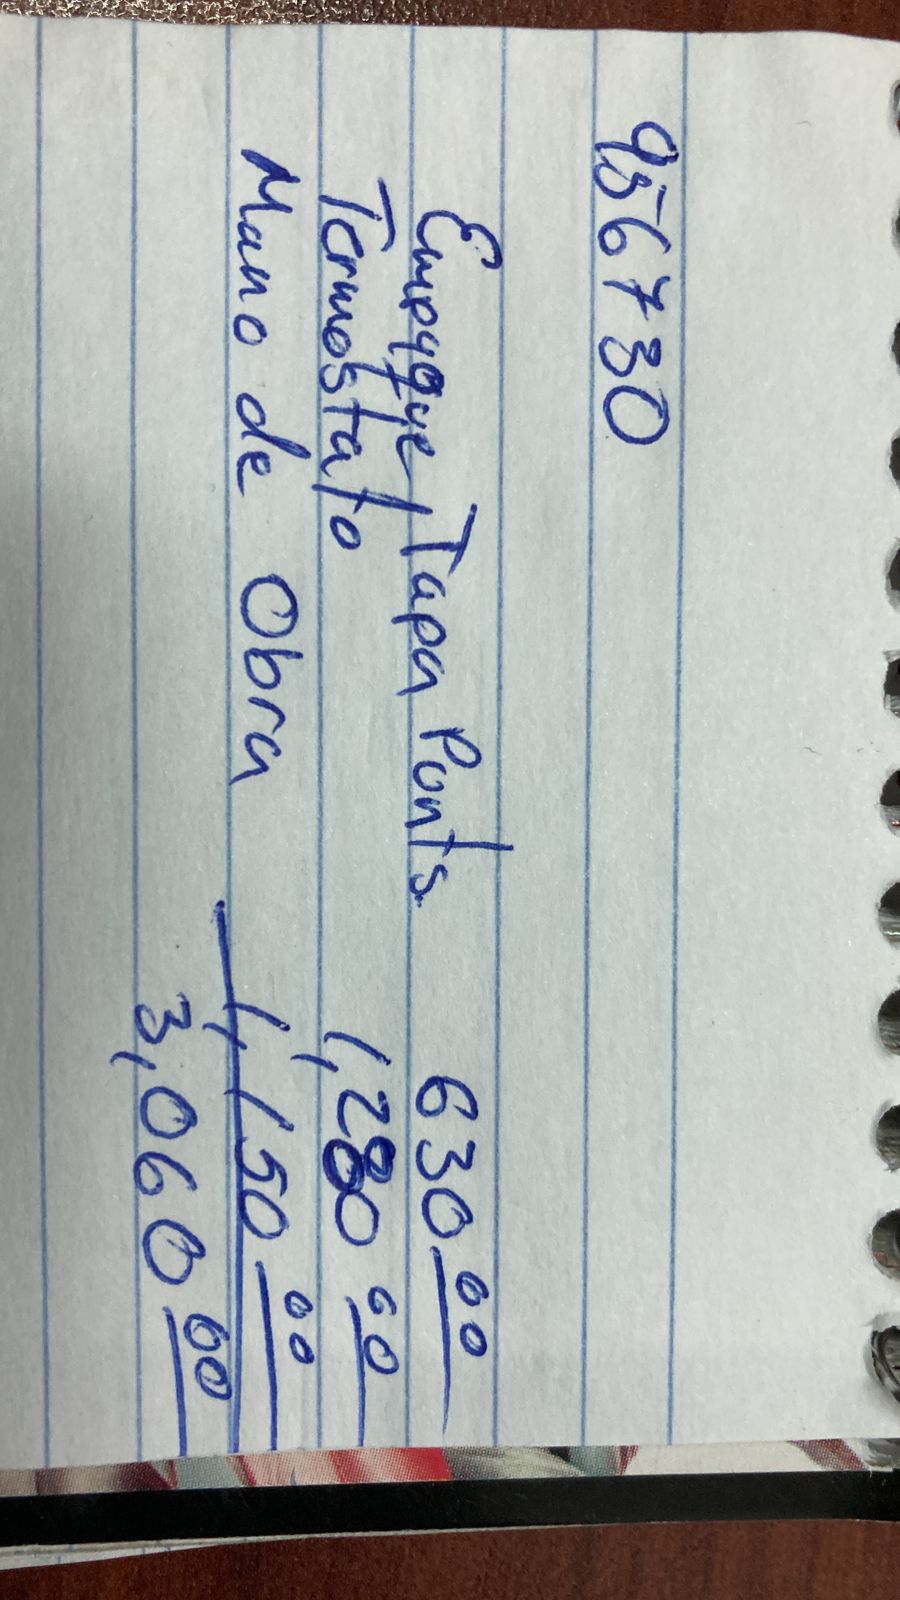 956730
Empaque Tapa Punts. 630 00
Termostato 1,280 00
Mano de Obra 1,150 00
3,060 00